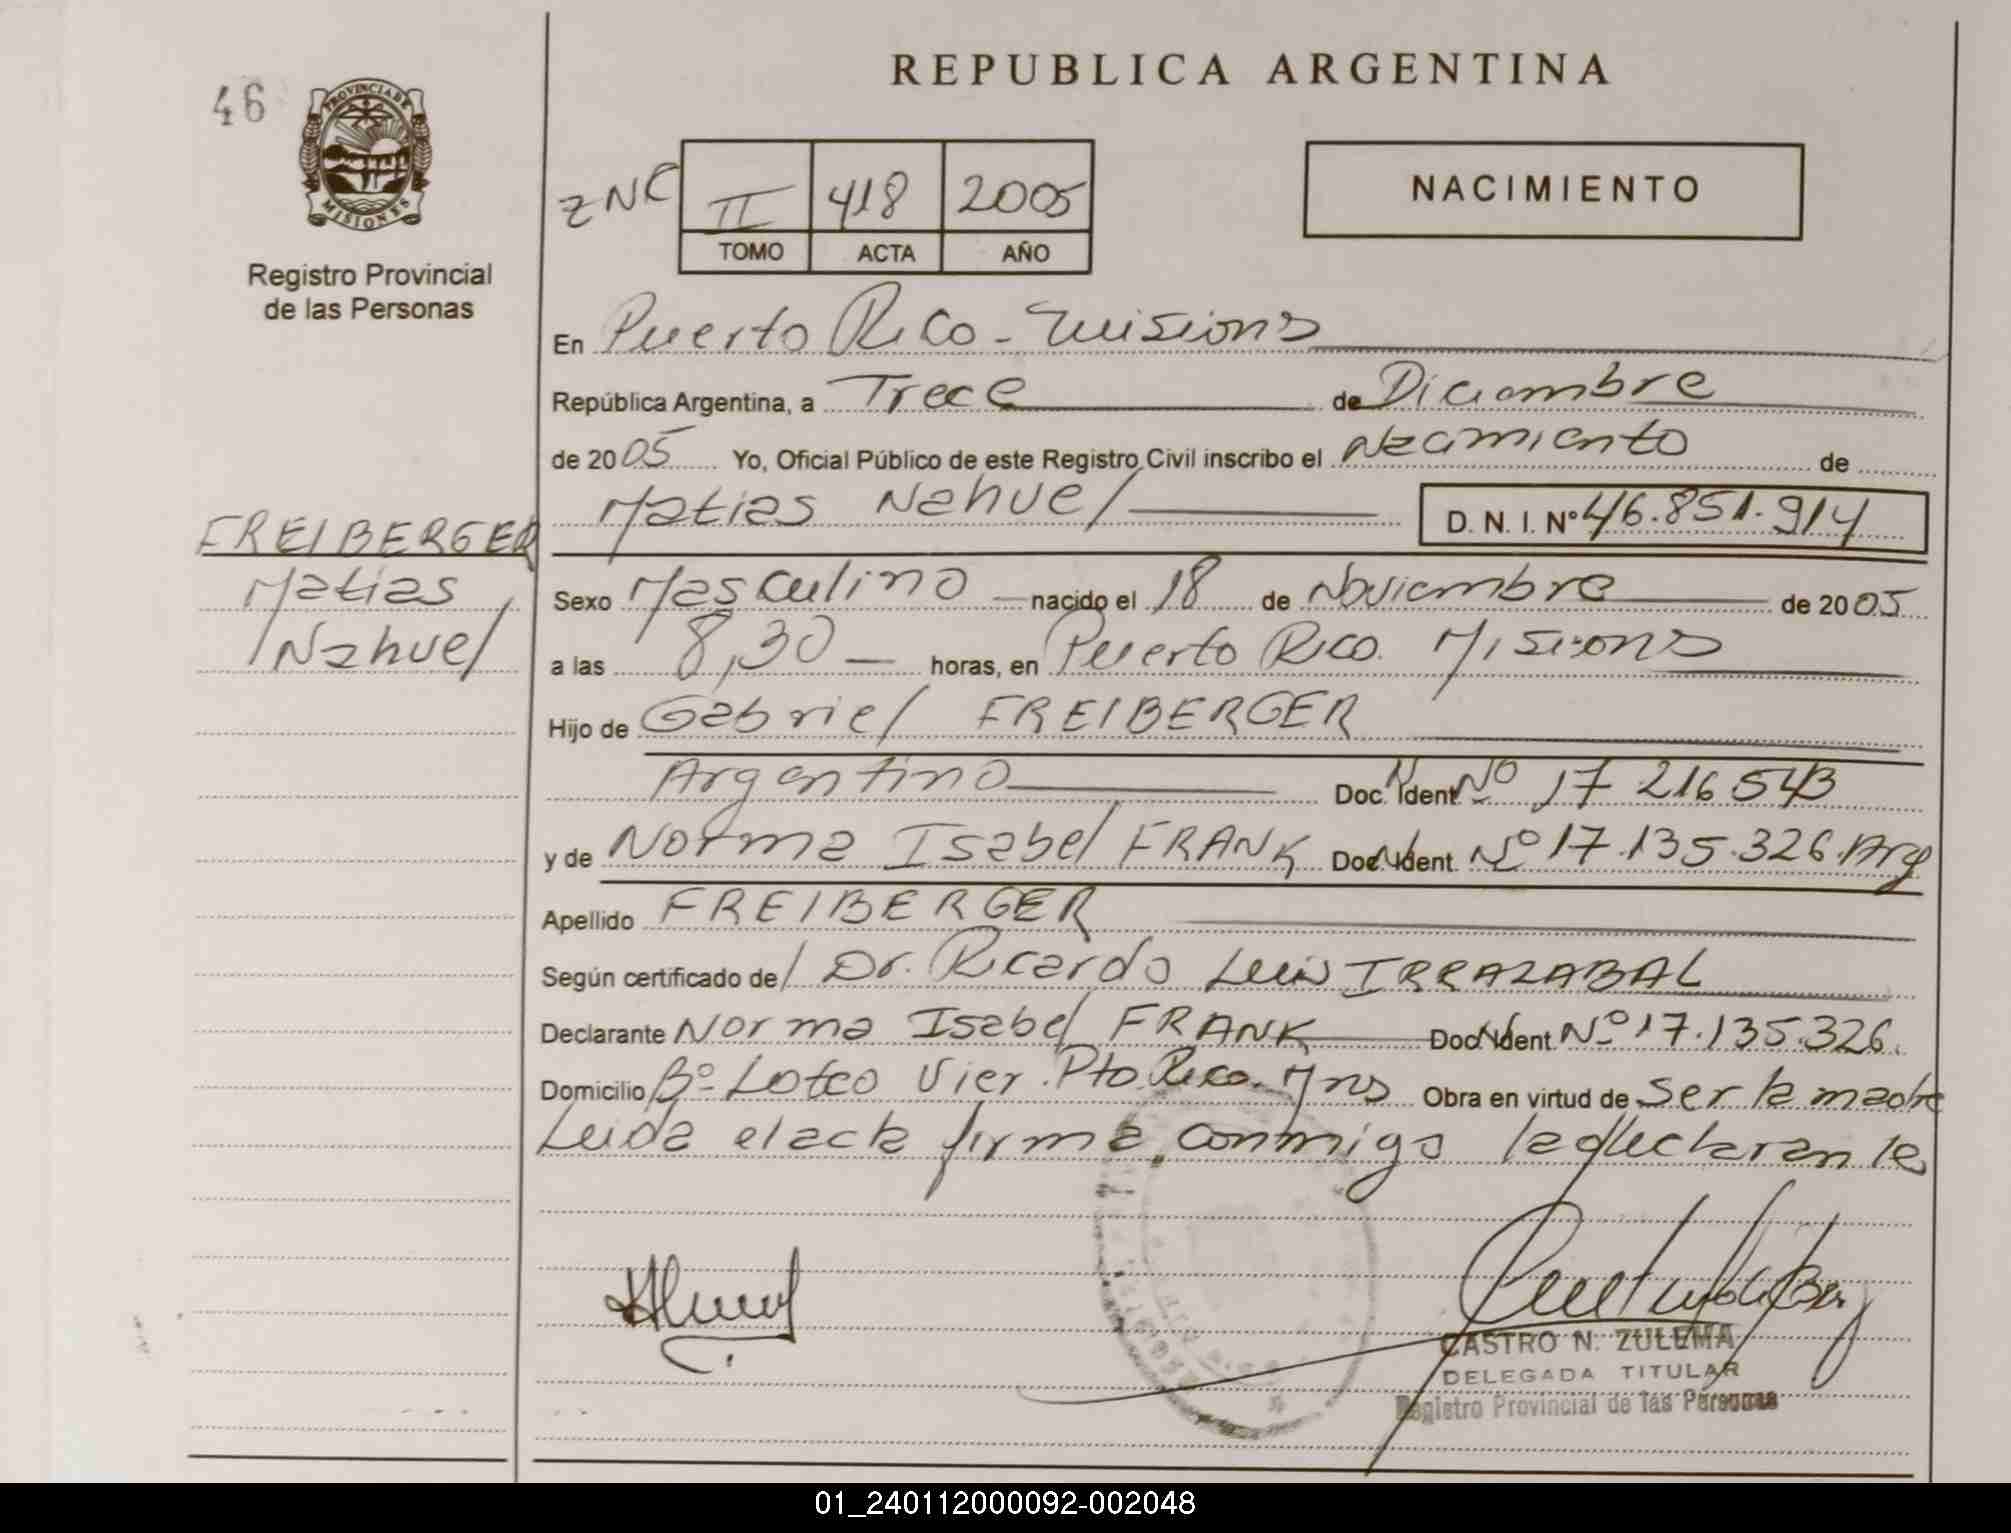 REPUBLICA ARGENTINA
46
PROVINCIA DE MISIONES
Registro Provincial
de las Personas
ZNC II 418 2005
TOMO ACTA AÑO
NACIMIENTO
En Puerto Rico - Misiones
República Argentina, a Trece de Diciembre
de 2005 Yo, Oficial Público de este Registro Civil inscribo el Nacimiento de
Matias Nahuel D. N. I. Nº 46.851.914
FREIBERGER
Matias
Nahuel
Sexo Masculino nacido el 18 de Noviembre de 2005
a las 8,30 horas, en Puerto Rico. Misiones
Hijo de Gabriel FREIBERGER
Argentino Doc. Ident. Nº 17 216 543
y de Norma Isabel FRANK Doc. Ident. Nº 17.135.326. Arg
Apellido FREIBERGER
Según certificado del Dr. Ricardo Luis IRRAZABAL
Declarante Norma Isabel FRANK Doc. Ident. Nº 17.135.326.
Domicilio Bº Loteo Vier. Pto Rico. Mns Obra en virtud de ser la madre
Leida el acta firma conmigo la declarante
CASTRO N. ZULEMA
DELEGADA TITULAR
Registro Provincial de las Personas
01_240112000092-002048